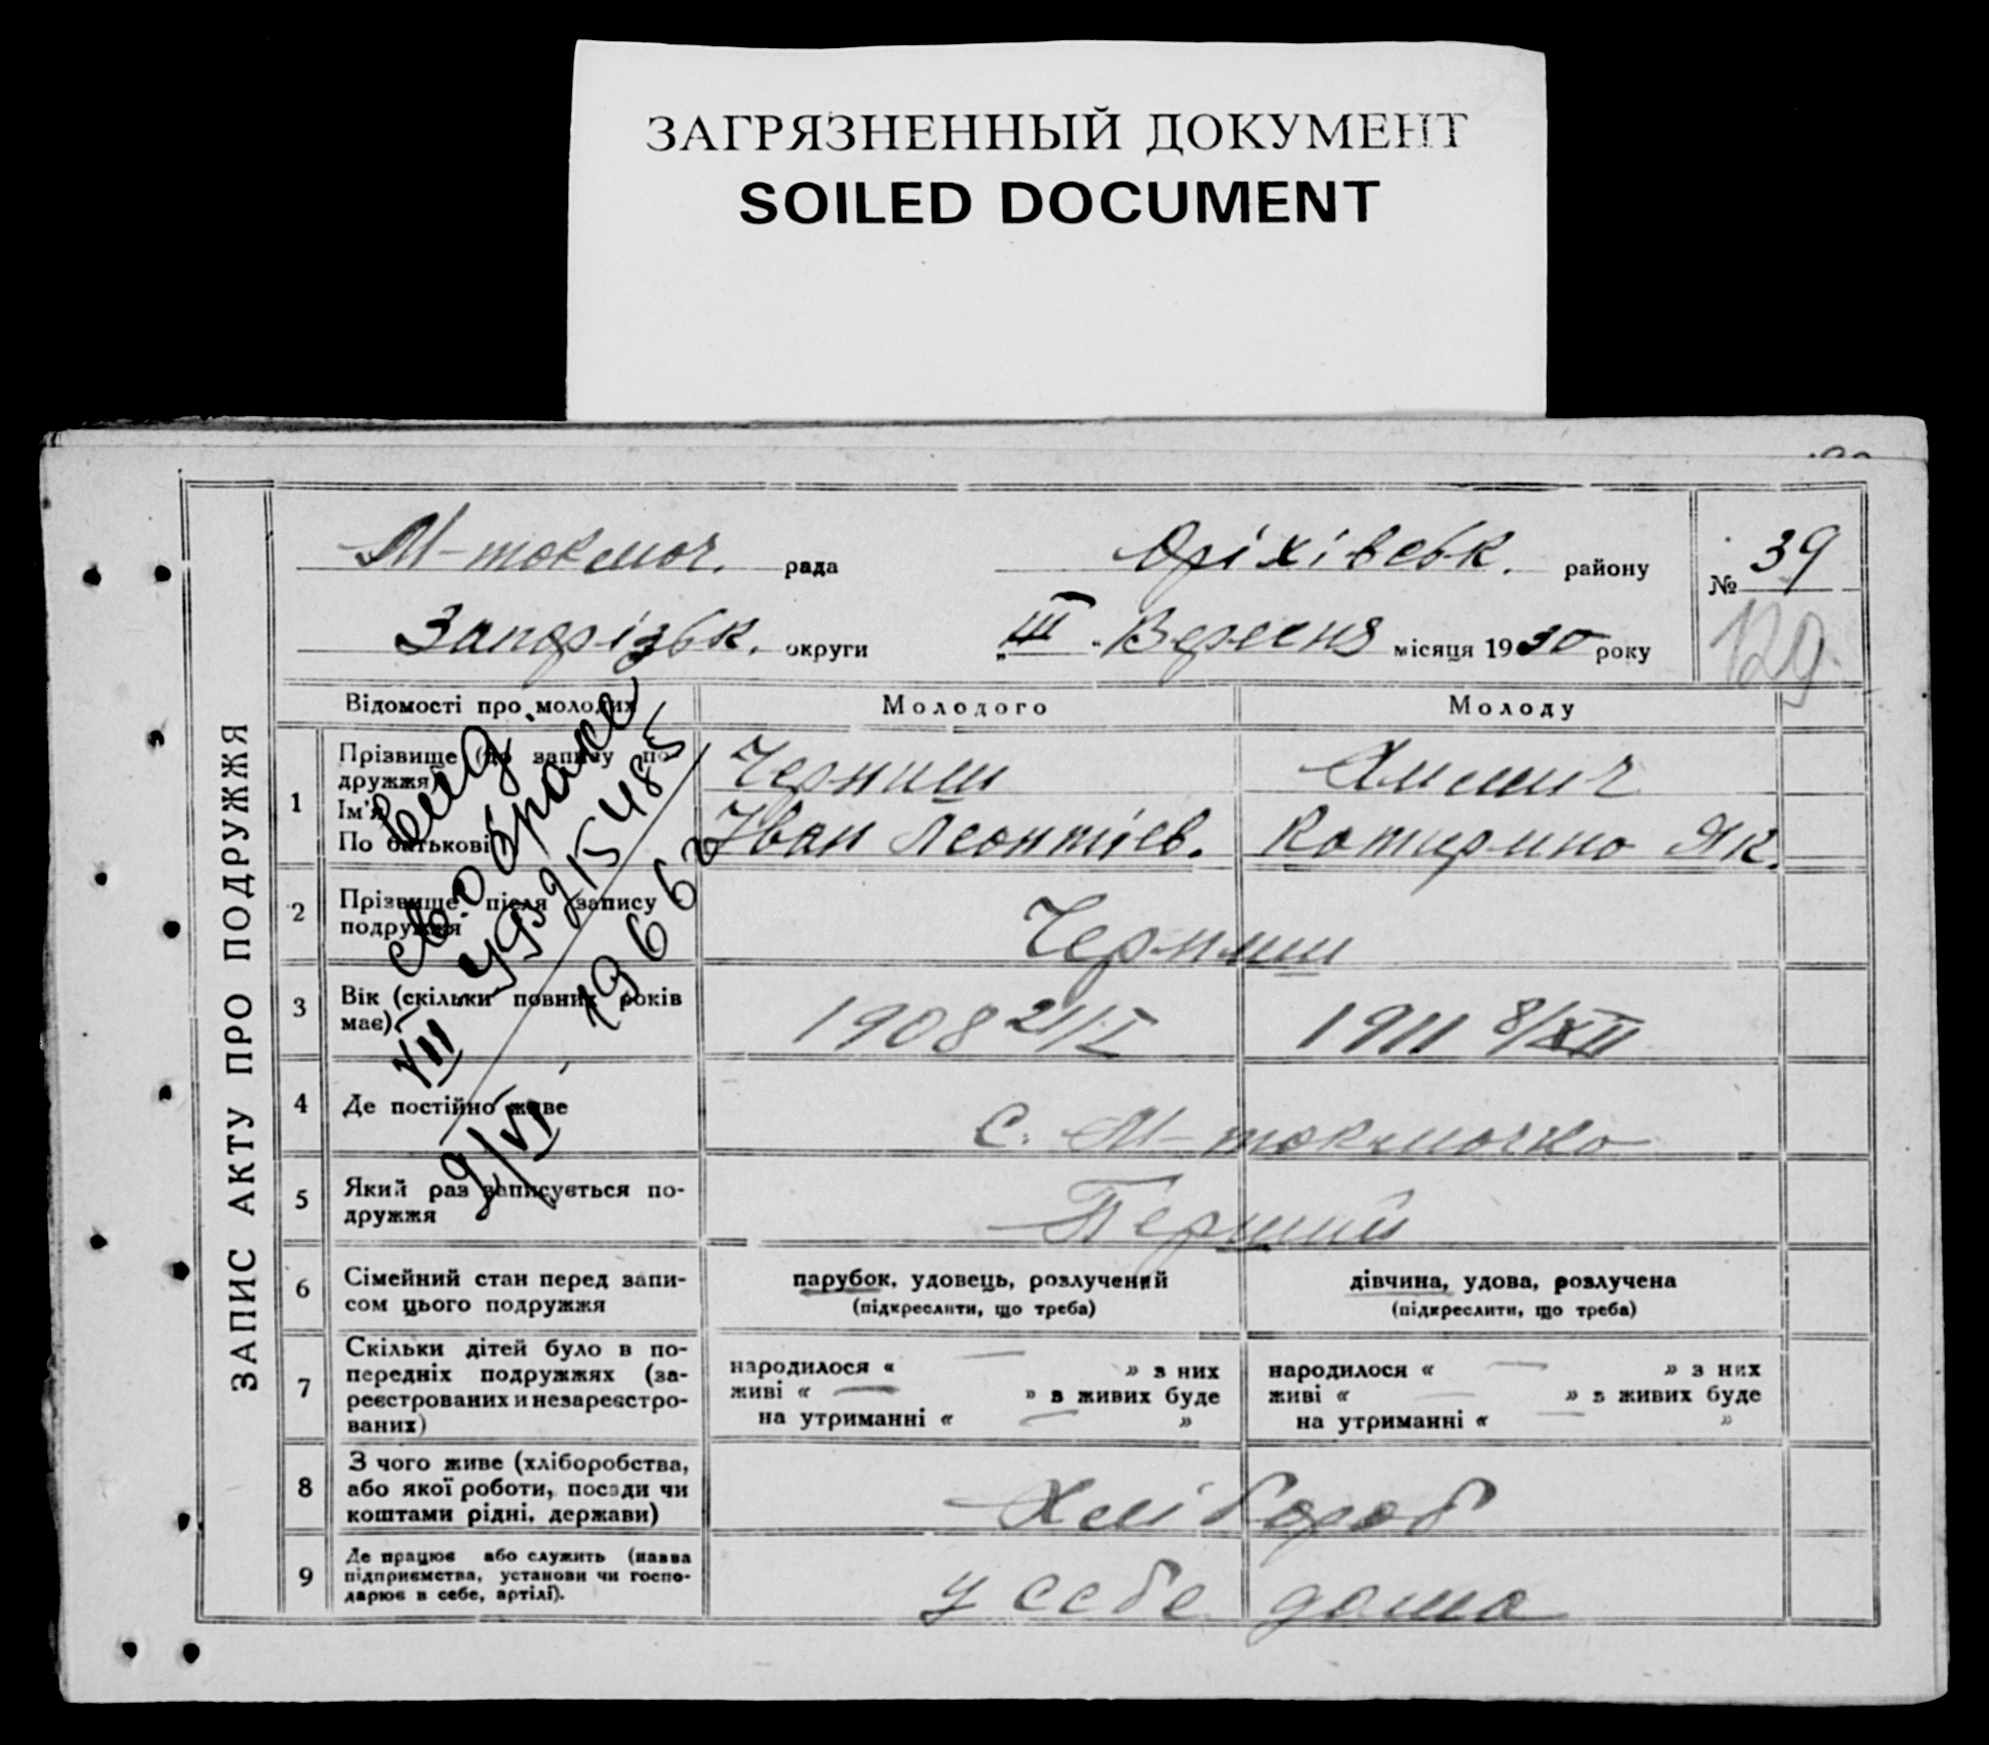 ЗАГРЯЗНЕННЫЙ ДОКУМЕНТ
SOILED DOCUMENT
ЗАПИС АКТУ ПРО ПОДРУЖЖЯ
М-токмоч. рада Оріхівськ. району № 39
Запорізьк. округи „III" Вересня місяця 1930 року 129
Відомості про молодих Молодого Молоду
1 Прізвище (до запису по-
дружжя)
Ім'я
По батькові
Черниш
Іван Леонтіев.
Катирино Як.
2 Прізвище після запису
подружжя
Черниш
3 Вік (скільки повних років
має)
1908 21/I 1911 8/XII
4 Де постійно живе
с. М-токмочка
5 Який раз записується по-
дружжя
Перший
6 Сімейний стан перед запи-
сом цього подружжя
парубок, удовець, розлучений
(підкреслити, що треба)
дівчина, удова, розлучена
(підкреслити, що треба)
7 Скільки дітей було в по-
передніх подружжях (за-
реєстрованих и незареєстро-
ваних)
народилося « — » з них
живі « — » в живих буде
на утриманні « — »
народилося « — » з них
живі « — » в живих буде
на утриманні « — »
8 З чого живе (хліборобства,
або якої роботи, посади чи
коштами рідні, держави)
Хлібороб
9 Де працює або служить (назва
підприємства, установи чи госпо-
дарює в себе, артілі).
у себе дома
выд.
св. о браке
VII УР 215485
2/VI 1966 г